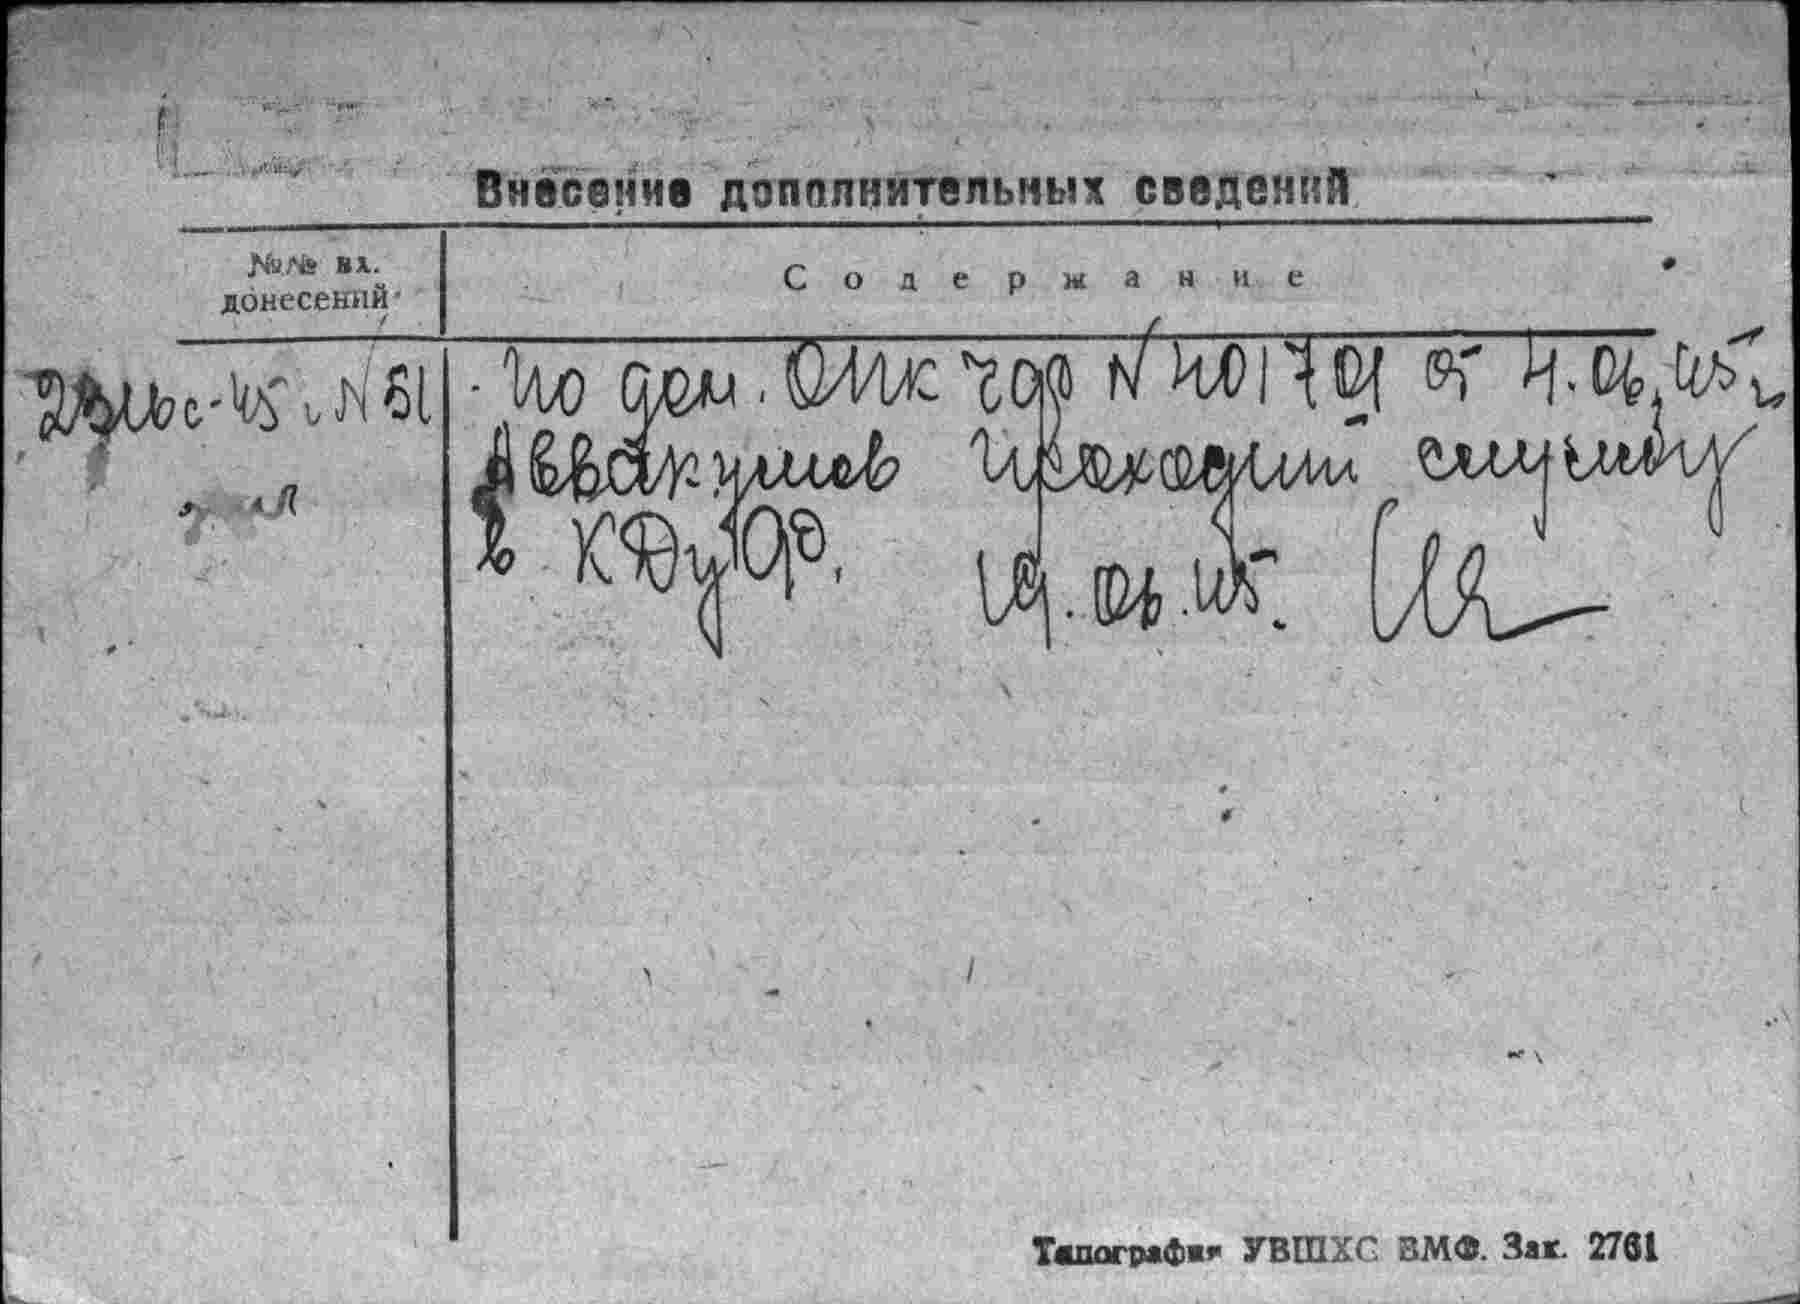 Внесение дополнительных сведений
№№ вх.
донесений
Содержание
45 г. №51
По дем. ОМК ЧФ № от 4.06.45 г.
Аввакумов проходит службу
в
19.06.45.
Типография УВШХС ВМФ. Зак. 2761